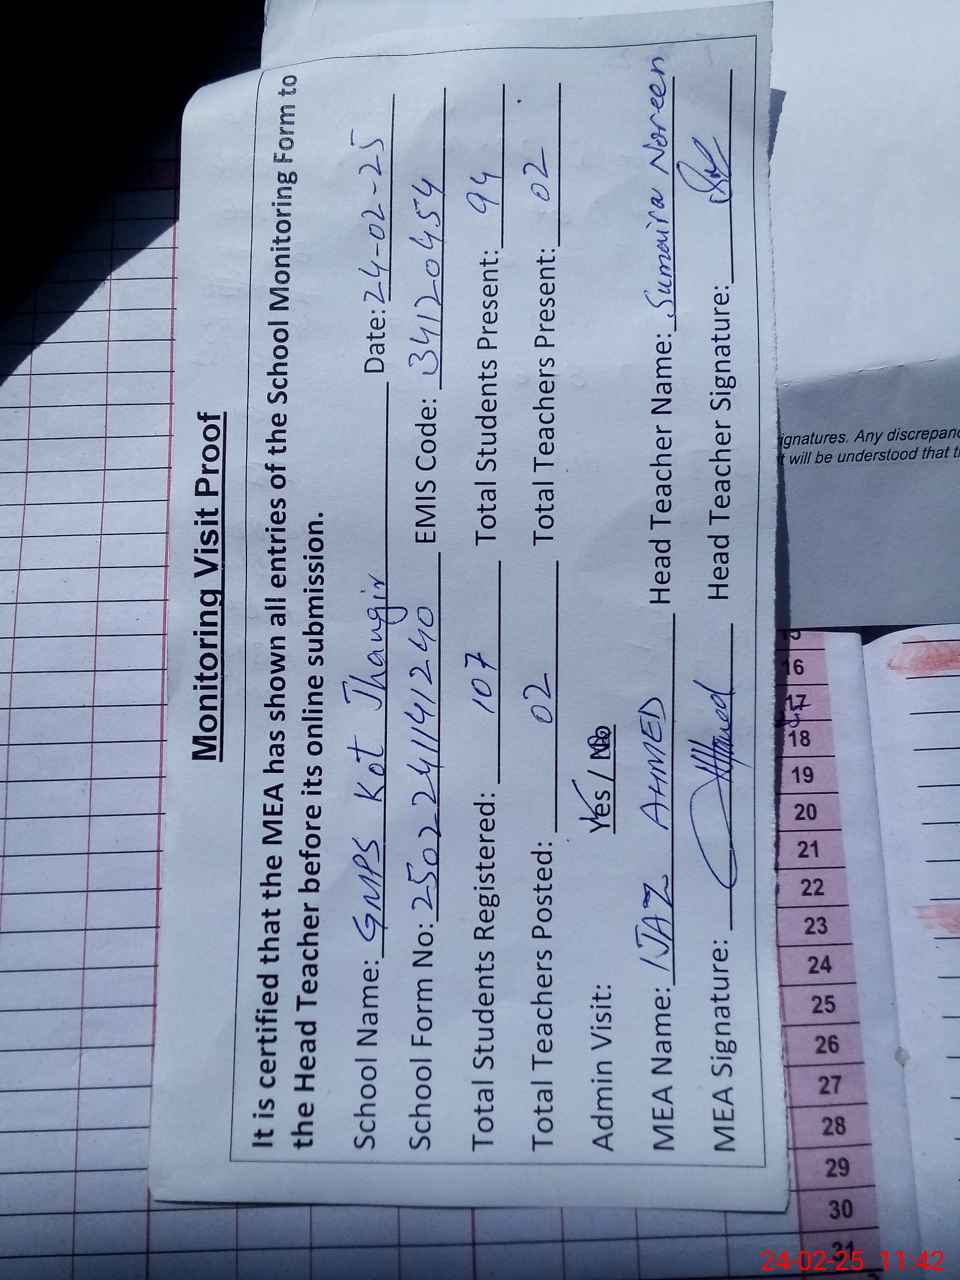 Monitoring Visit Proof
It is certified that the MEA has shown all entries of the School Monitoring Form to
the Head Teacher before its online submission.
School Name: GMPS Kot Jhangir Date: 24-02-25
School Form No: 2502241141240 EMIS Code: 34120454
Total Students Registered: 107 Total Students Present: 94
Total Teachers Posted: 02 Total Teachers Present: 02
Admin Visit: Yes / No
MEA Name: IJAZ AHMED Head Teacher Name: Sumaira Noreen
MEA Signature: Ahmed Head Teacher Signature:
ignatures. Any discrepanc
t will be understood that t
16
17
18
19
20
21
22
23
24
25
26
27
28
29
30
31
24-02-25 11:42